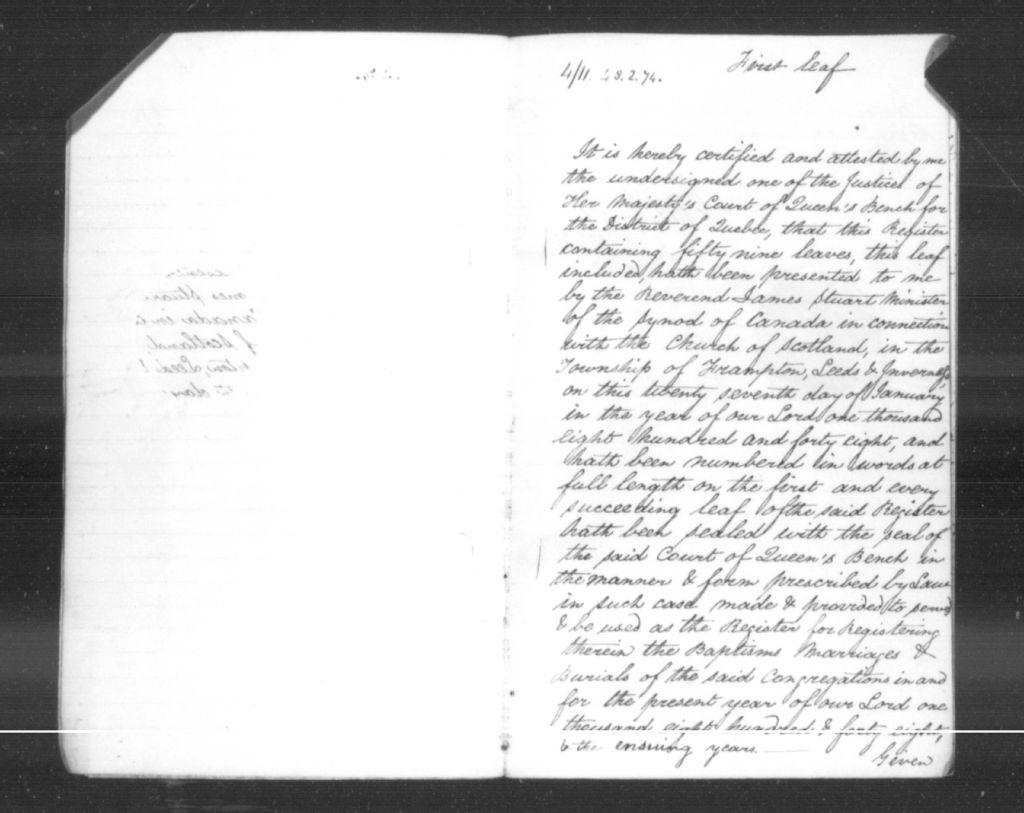 4/11. 28.2.74.
First leaf
It is hereby certified and attested by me
the undersigned one of the Justices of
Her Majesty's Court of Queen's Bench for
the District of Quebec, that this Register
containing fifty nine leaves, this leaf
included, hath been presented to me
by the Reverend James Stuart Minister
of the Synod of Canada in connection
with the Church of Scotland, in the
Township of Frampton, Leeds & Inverness,
on this twenty seventh day of January
in the year of our Lord one thousand
eight hundred and forty eight, and
hath been numbered in words at
full length on the first and every
succeeding leaf of the said Register
hath been sealed with the seal of
the said Court of Queen's Bench in
the manner & form prescribed by Law
in such case made & provided to serve
& be used as the Register for Registering
therein the Baptisms Marriages &
Burials of the said Congregations in and
for the present year of our Lord one
thousand eight hundred & forty eight,
& the ensuing years.
Given